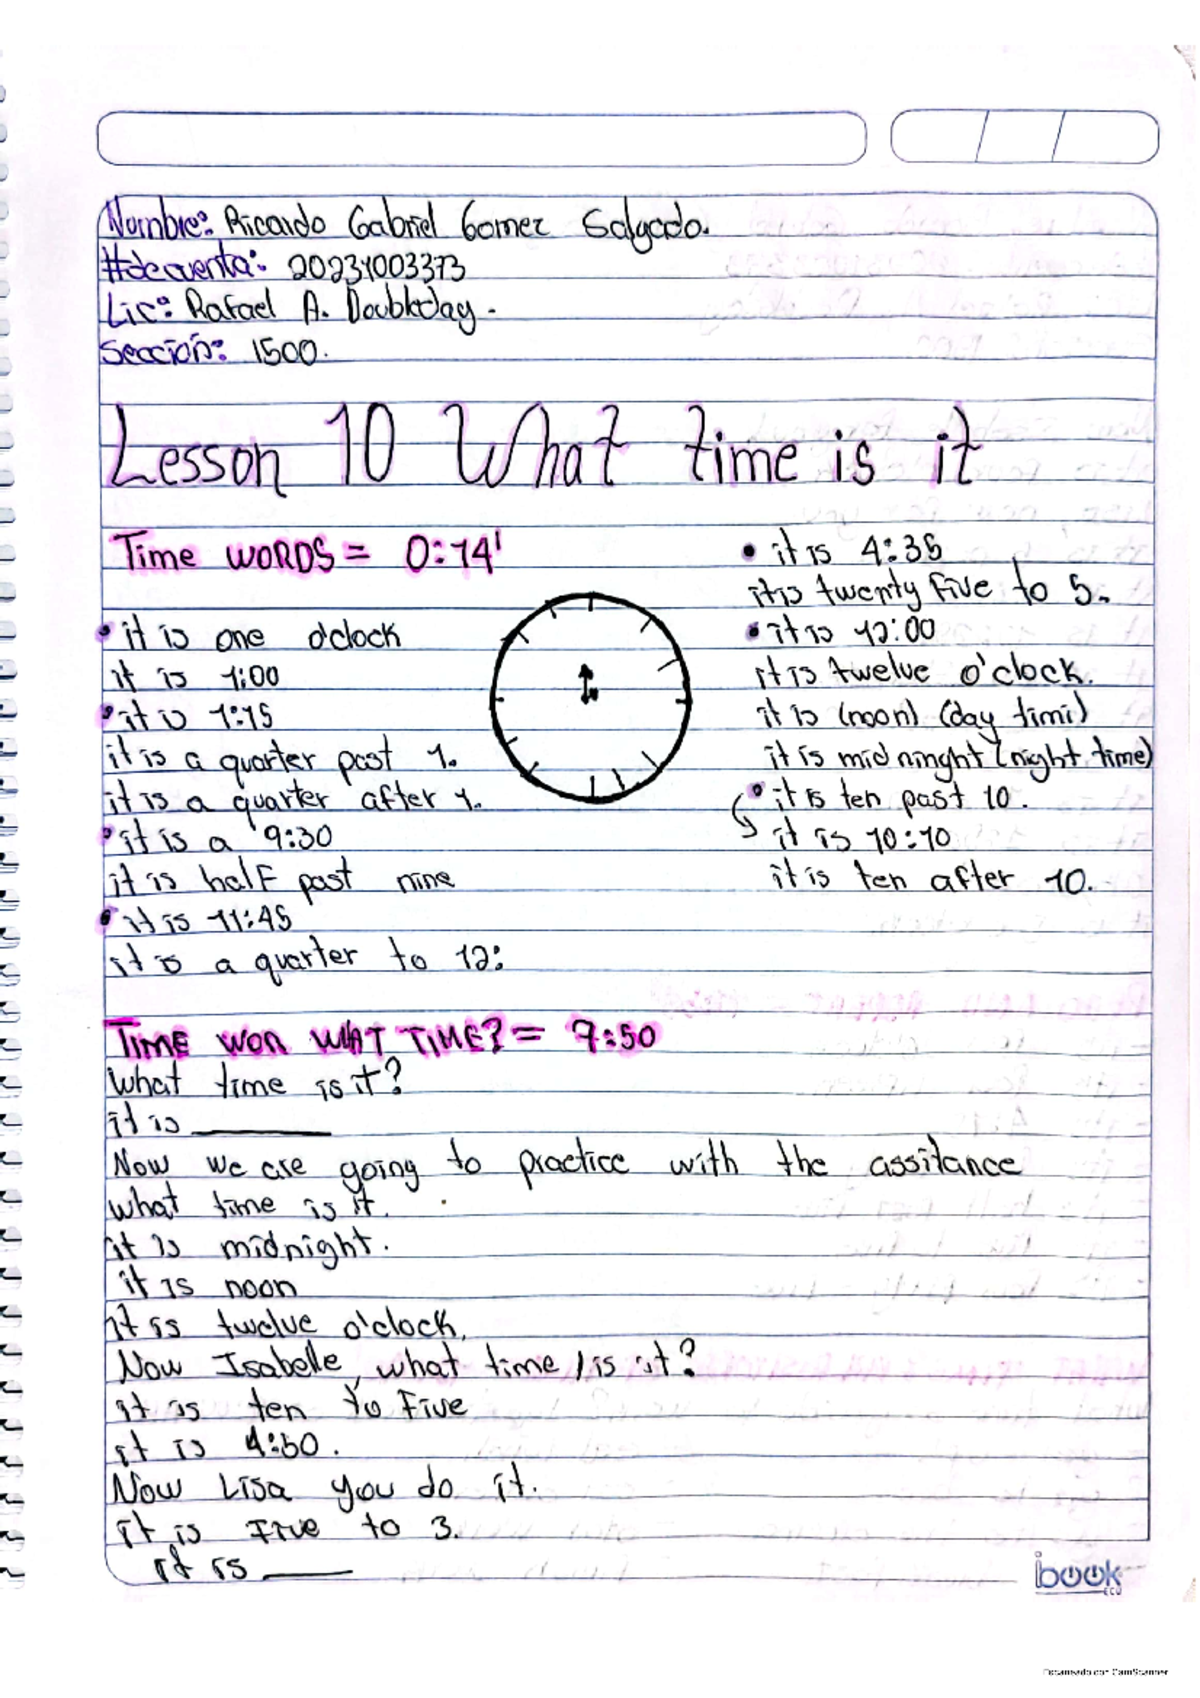 Nombre: Ricardo Gabriel Gomez Salgado.
#de cuenta: 20231003373
Lic: Rafael A. Doubleday.
Sección: 1500.
Lesson 10 What time is it
Time WORDS = 0:14'
• it is one o'clock
it is 1:00
• it is 1:15
it is a quarter past 1.
it is a quarter after 1.
• it is a 9:30
it is half past nine
• it is 11:45
it is a quarter to 12:
• it is 4:35
it is twenty five to 5.
• it is 12:00
it is twelve o'clock.
it is (noon) (day timi)
it is mid ninght (night time)
• it is ten past 10.
it is 10:10
it is ten after 10.
TIME WOR WHAT TIME? = 7:50
What time is it?
it is ______
Now we are going to practice with the assitance
what time is it.
it is midnight.
it is noon
it is twelve o'clock,
Now Isabelle, what time is it?
it is ten to Five
it is 4:50.
Now Lisa you do it.
it is Five to 3.
it is ____
ibook
ECU
Escaneado con CamScanner